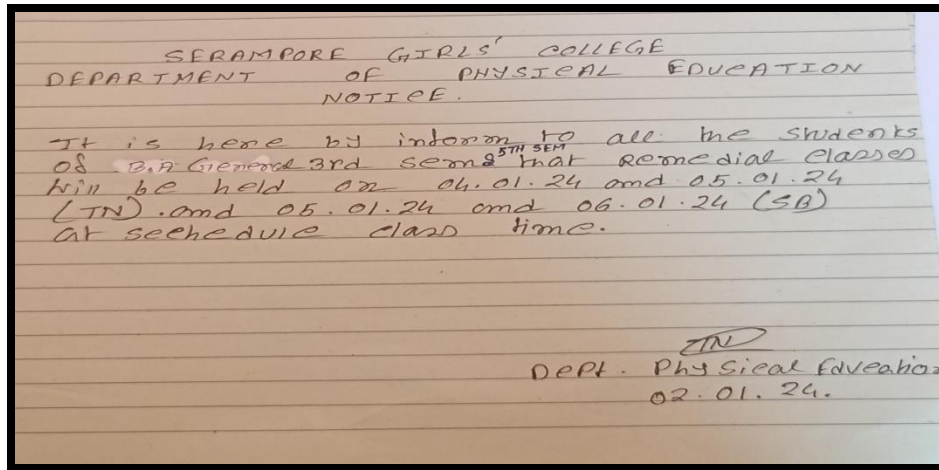 SERAMPORE GIRLS' COLLEGE
DEPARTMENT OF PHYSICAL EDUCATION
NOTICE.
It is here by inform to all the students
of B.A General 3rd sem & 5TH SEM that Remedial classes
will be held on 04.01.24 and 05.01.24
(TN). and 05.01.24 and 06.01.24 (SB)
at seehedule class time.
TN
Dept. Physical Education
02.01.24.